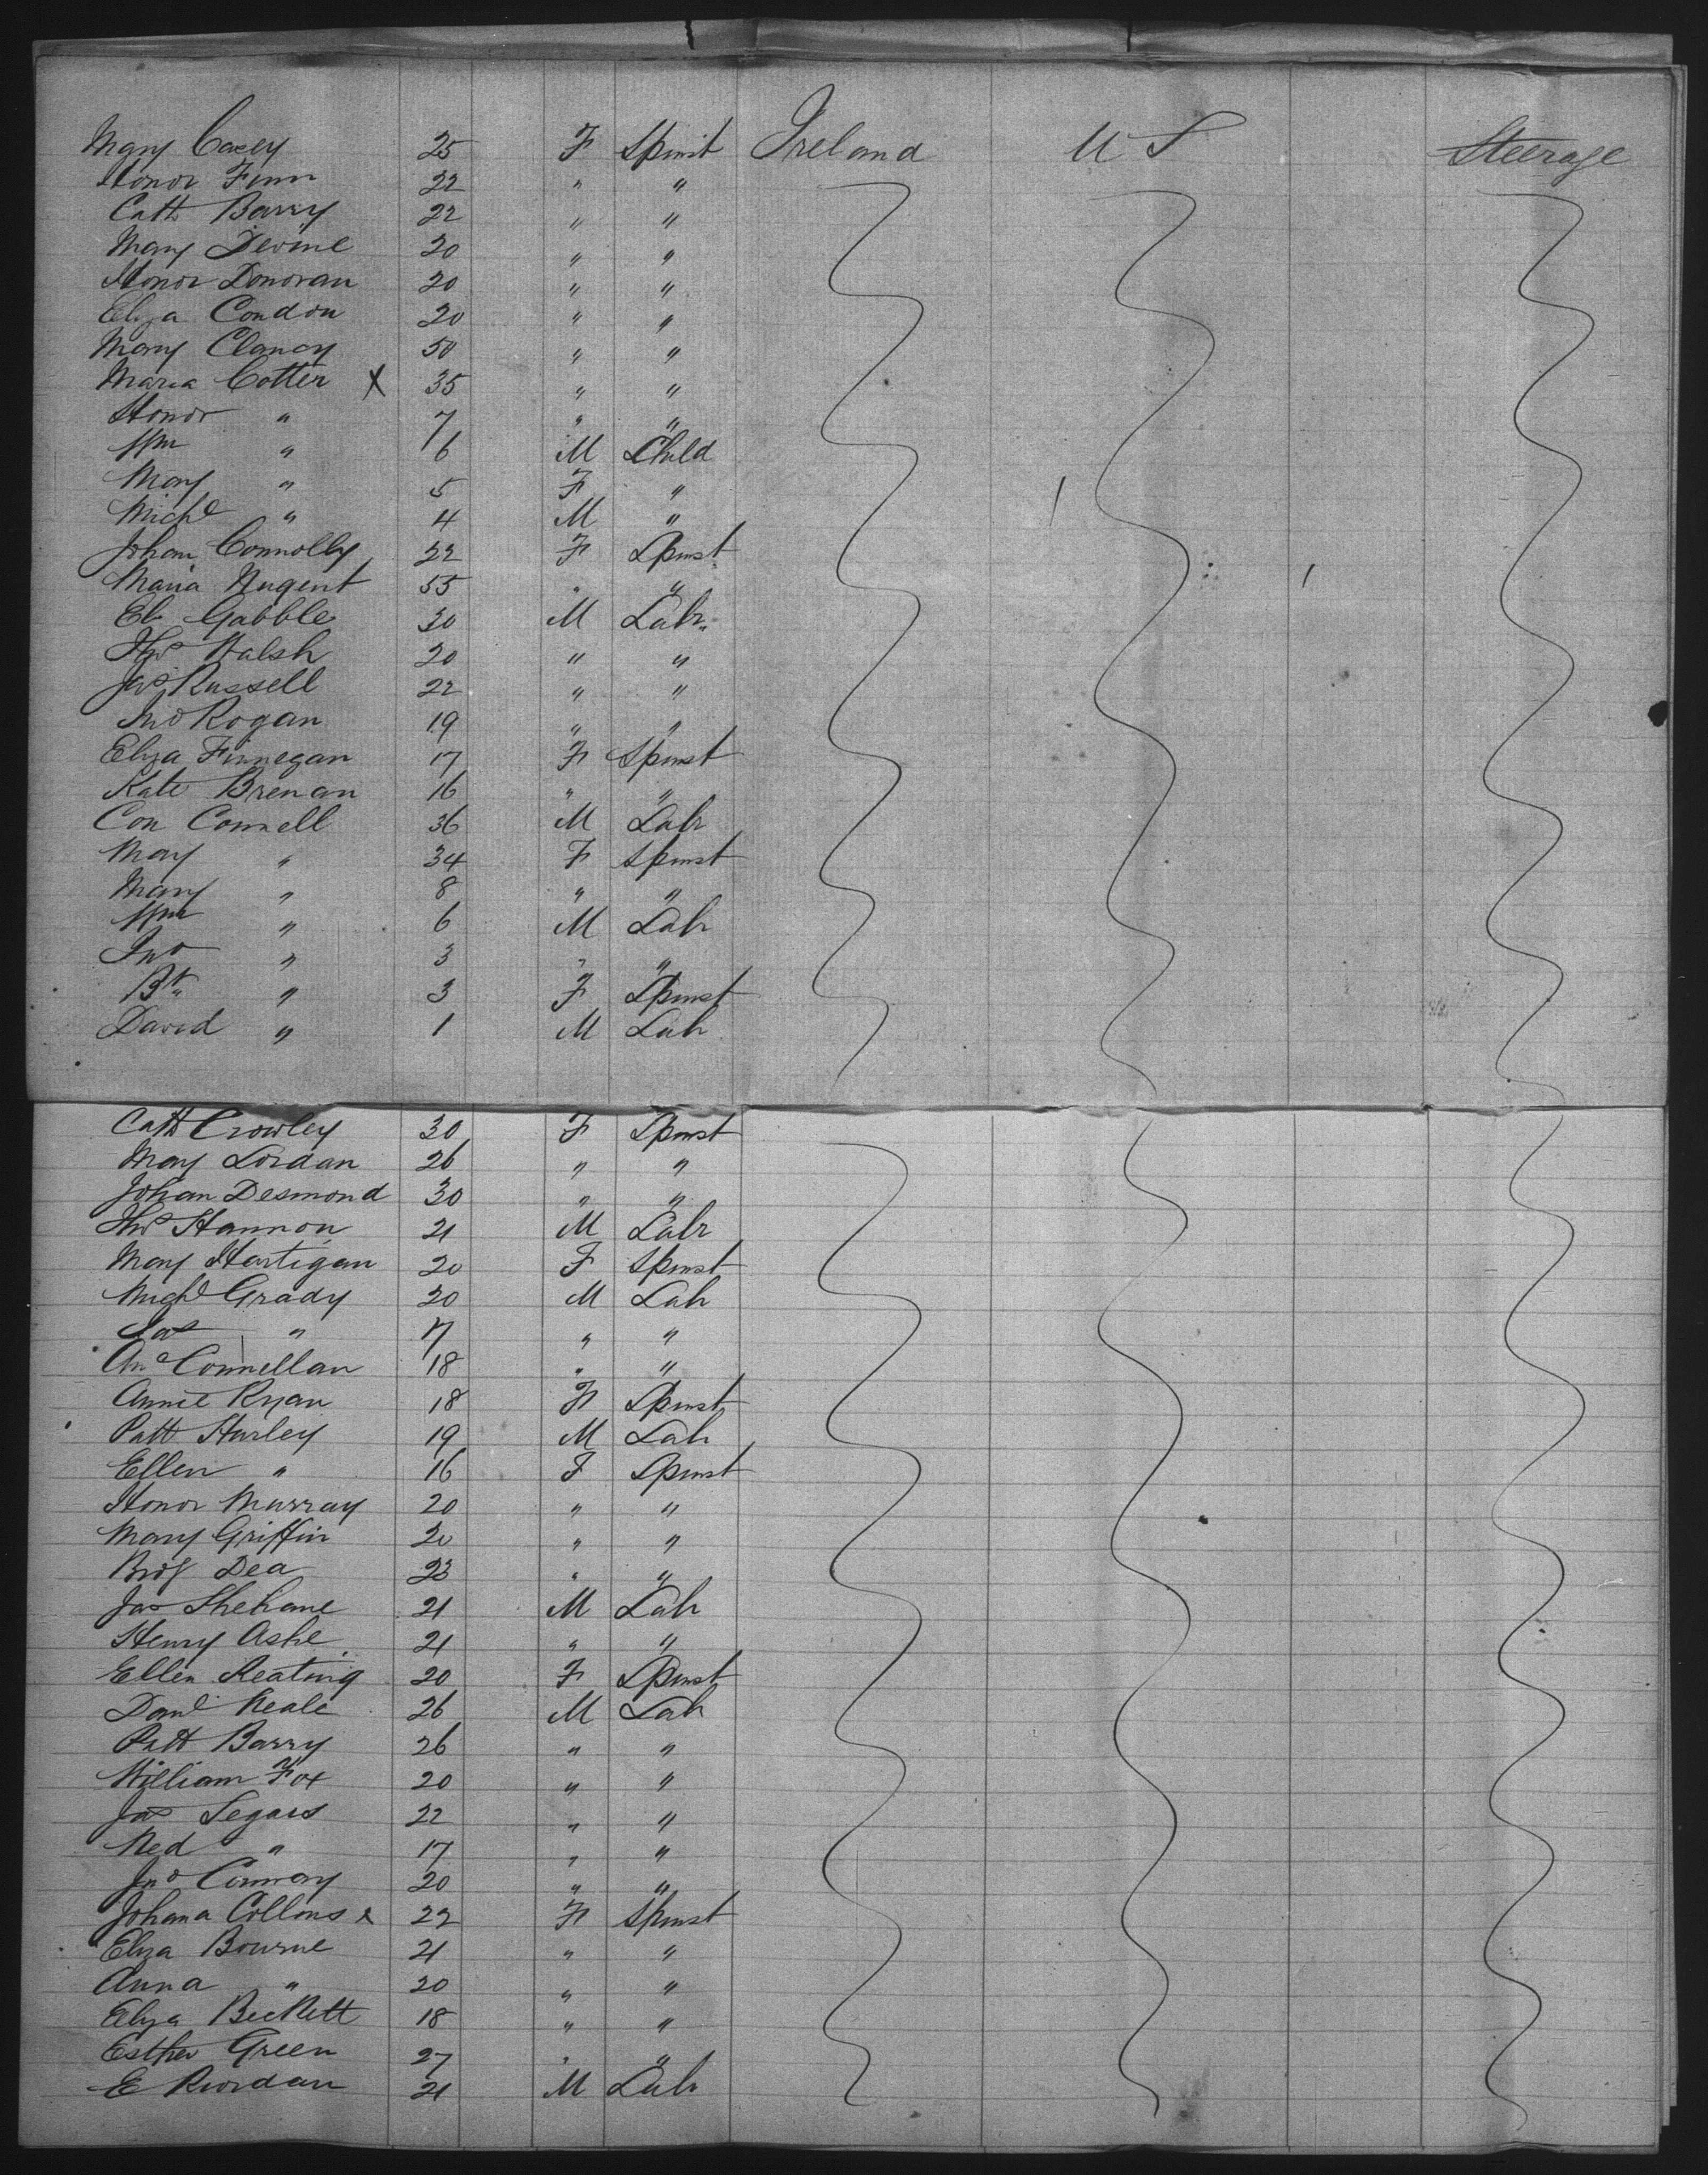 Mary Casey 25 F Spinst Ireland U S Steerage
Honor Finn 22 " "
Cath Barry 22 " "
Mary Devine 20 " "
Honor Donovan 20 " "
Eliza Condon 20 " "
Mary Clancy 50 " "
Maria Cotter X 35 " "
Honor " 7 " "
Wm " 6 M Child
Mary " 5 F "
Michl " 4 M "
Johan Connolly 22 F Spinst
Maria Nugent 55 " "
Gabble 30 M Labr
Thos Walsh 20 " "
Jas Russell 22 " "
Jno Rogan 19 " "
Eliza Finnegan 17 F Spinst
Kate Brenan 16 " "
Con Connell 36 M Labr
Mary " 34 F Spinst
Mary " 8 " "
Wm " 6 M Labr
Jno " 3 " "
Bt " 3 F Spinst
David " 1 M Labr
Cath Crowley 30 F Spinst
Mary Lordan 26 " "
Johan Desmond 30 " "
Thos Hannon 21 M Labr
Mary Hartigan 20 F Spinst
Michl Grady 20 M Labr
Jas " 7 " "
Connellan 18 " "
Annie Ryan 18 F Spinst
Patt Hurley 19 M Labr
Ellen " 16 F Spinst
Honor Murray 20 " "
Mary Griffin 20 " "
Bridg Dea 23 " "
Jas Shehane 21 M Labr
Henry Ashe 21 " "
Ellen Keating 20 F Spinst
Danl Neale 26 M Labr
Patt Barry 26 " "
William Fox 20 " "
Jas Segars 22 " "
Ned " 17 " "
Jno Conway 20 " "
Johana Collins x 22 F Spinst
Eliza Bourne 21 " "
Anna " 20 " "
Eliza Beckett 18 " "
Esther Green 27 " "
E Riordan 21 M Labr